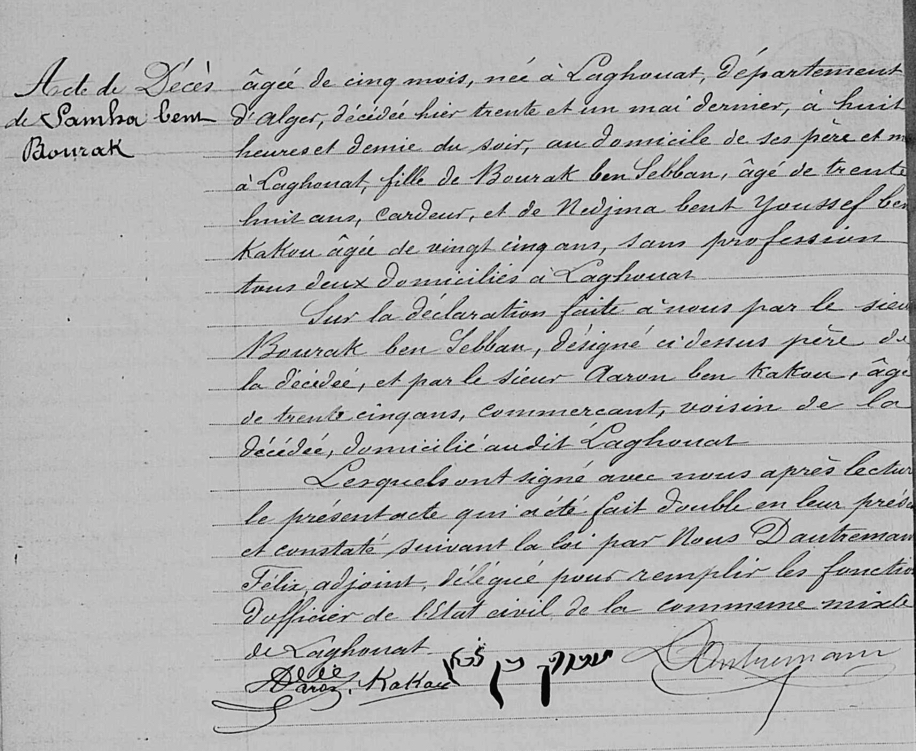 Acte de Décès
de Samha bent
Bourak
âgée de cinq mois, née à Laghouat, département
d'Alger, décédée hier trente et un mai dernier, à huit
heures et demie du soir, au domicile de ses père et m
à Laghouat, fille de Bourak ben Sebban, âgé de trente
huit ans, cardeur, et de Nedjma bent Youssef ben
Kakou âgée de vingt cinq ans, sans profession
tous deux domiciliés à Laghouat
Sur la déclaration faite à nous par le sieu
Bourak ben Sebban, désigné ci dessus père de
la décédée, et par le sieur Aaron ben Kakou, âgé
de trente cinq ans, commercant, voisin de la
décédée, domicilié audit Laghouat
Lesquels ont signé avec nous après lectur
le présent acte qui a été fait double en leur prése
et constaté suivant la loi par Nous Dautreman
Félix, adjoint, délégué pour remplir les fonctio
d'officier de l'Etat civil de la commune mixte
de Laghouat
Kakou בן Dautremann